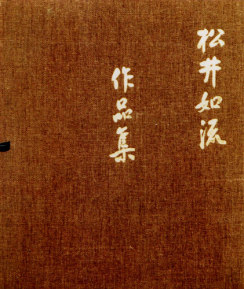 松井如流
作品集